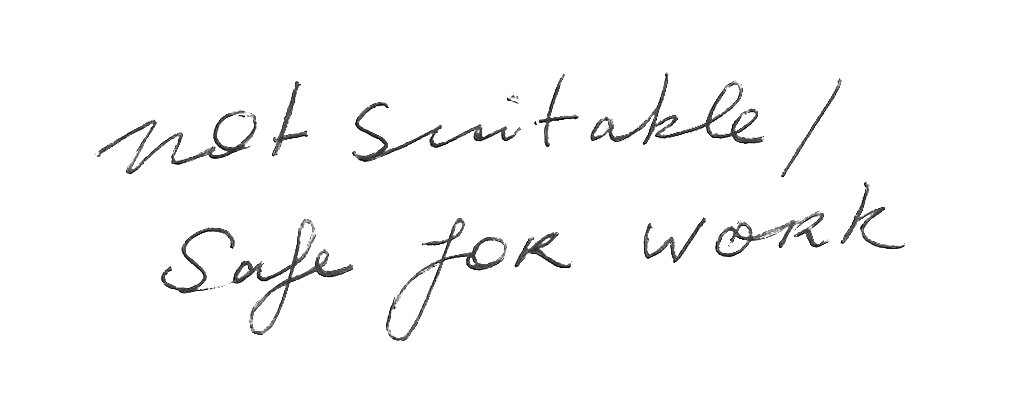 not suitable/
Safe for work